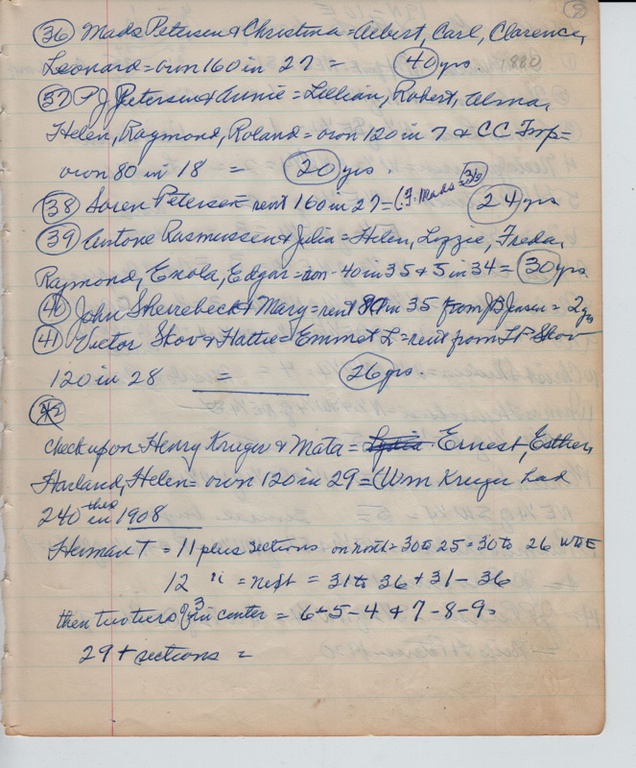 9
36 Mads Petersen & Christina = Albert, Carl, Clarence,
Leonard = own 160 in 27 = 40 yrs. 1880
37 P J Petersen & Annie = Lillian, Robert, Alma,
Helen, Raymond, Roland = own 120 in 7 & CC Imp =
own 80 in 18 = 20 yrs.
38 Soren Petersen = rent 160 in 27 = (F. Mads = 36) 24 yrs
39 Antone Rasmussen & Julia = Helen, Lizzie, Freda,
Raymond, Enola, Edgar = own 40 in 35 & 5 in 34 = 30 yrs
40 John Sheirebeck & Mary = rent 80 in 35 from JB Jensen = 2 yrs
41 Victor Skov & Hattie = Emmet L = rent from LP Skov
120 in 28 = 26 yrs.
42
Check up on Henry Krueger & Mata = Lydia Ernest, Esther,
Harland, Helen = own 120 in 29 = (Wm Krueger had
240 in 1908
Herman T = 11 plus sections on north = 30 to 25 = 30 to 26 W to E
12 " = next = 31 to 36 + 31 - 36
then two tiers 3 in center = 6 - 5 - 4 + 7 - 8 - 9 =
29 + sections =